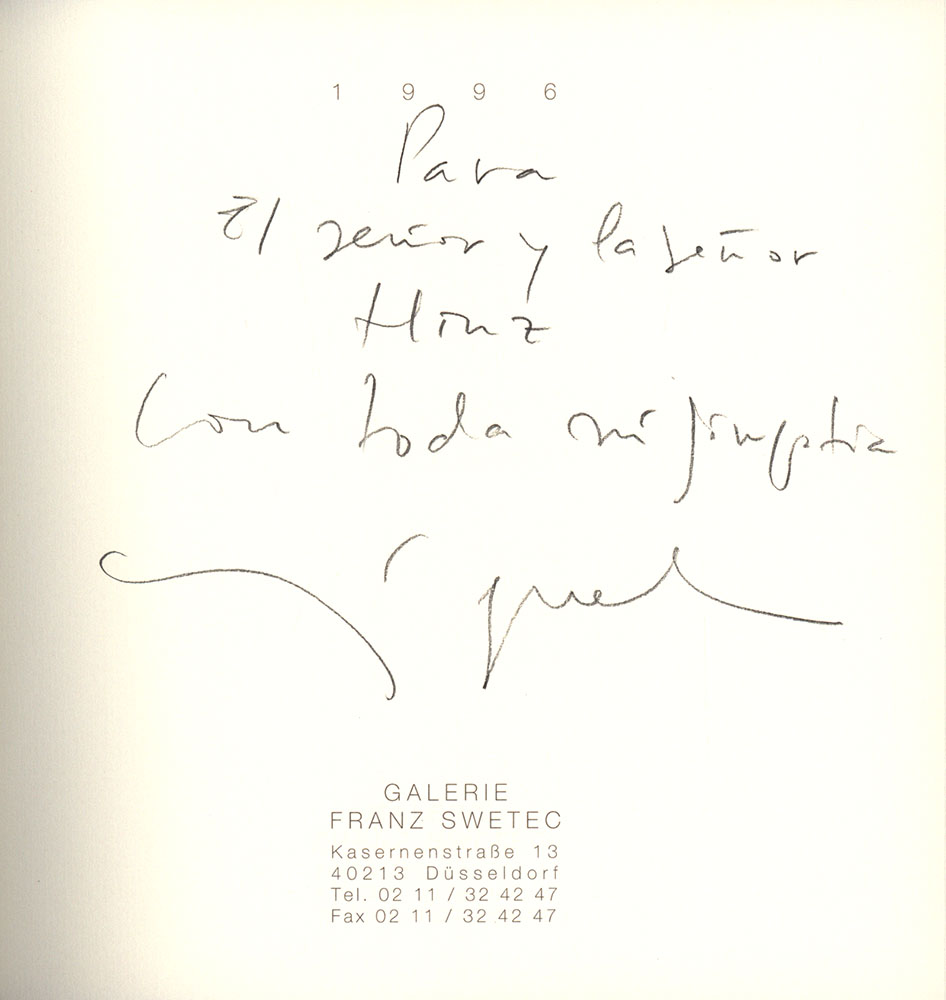 1996
Para
El señor y la señor
Hinz
Con toda mi simptia
GALERIE
FRANZ SWETEC
Kasernenstraße 13
40213 Düsseldorf
Tel. 02 11 / 32 42 47
Fax 02 11 / 32 42 47